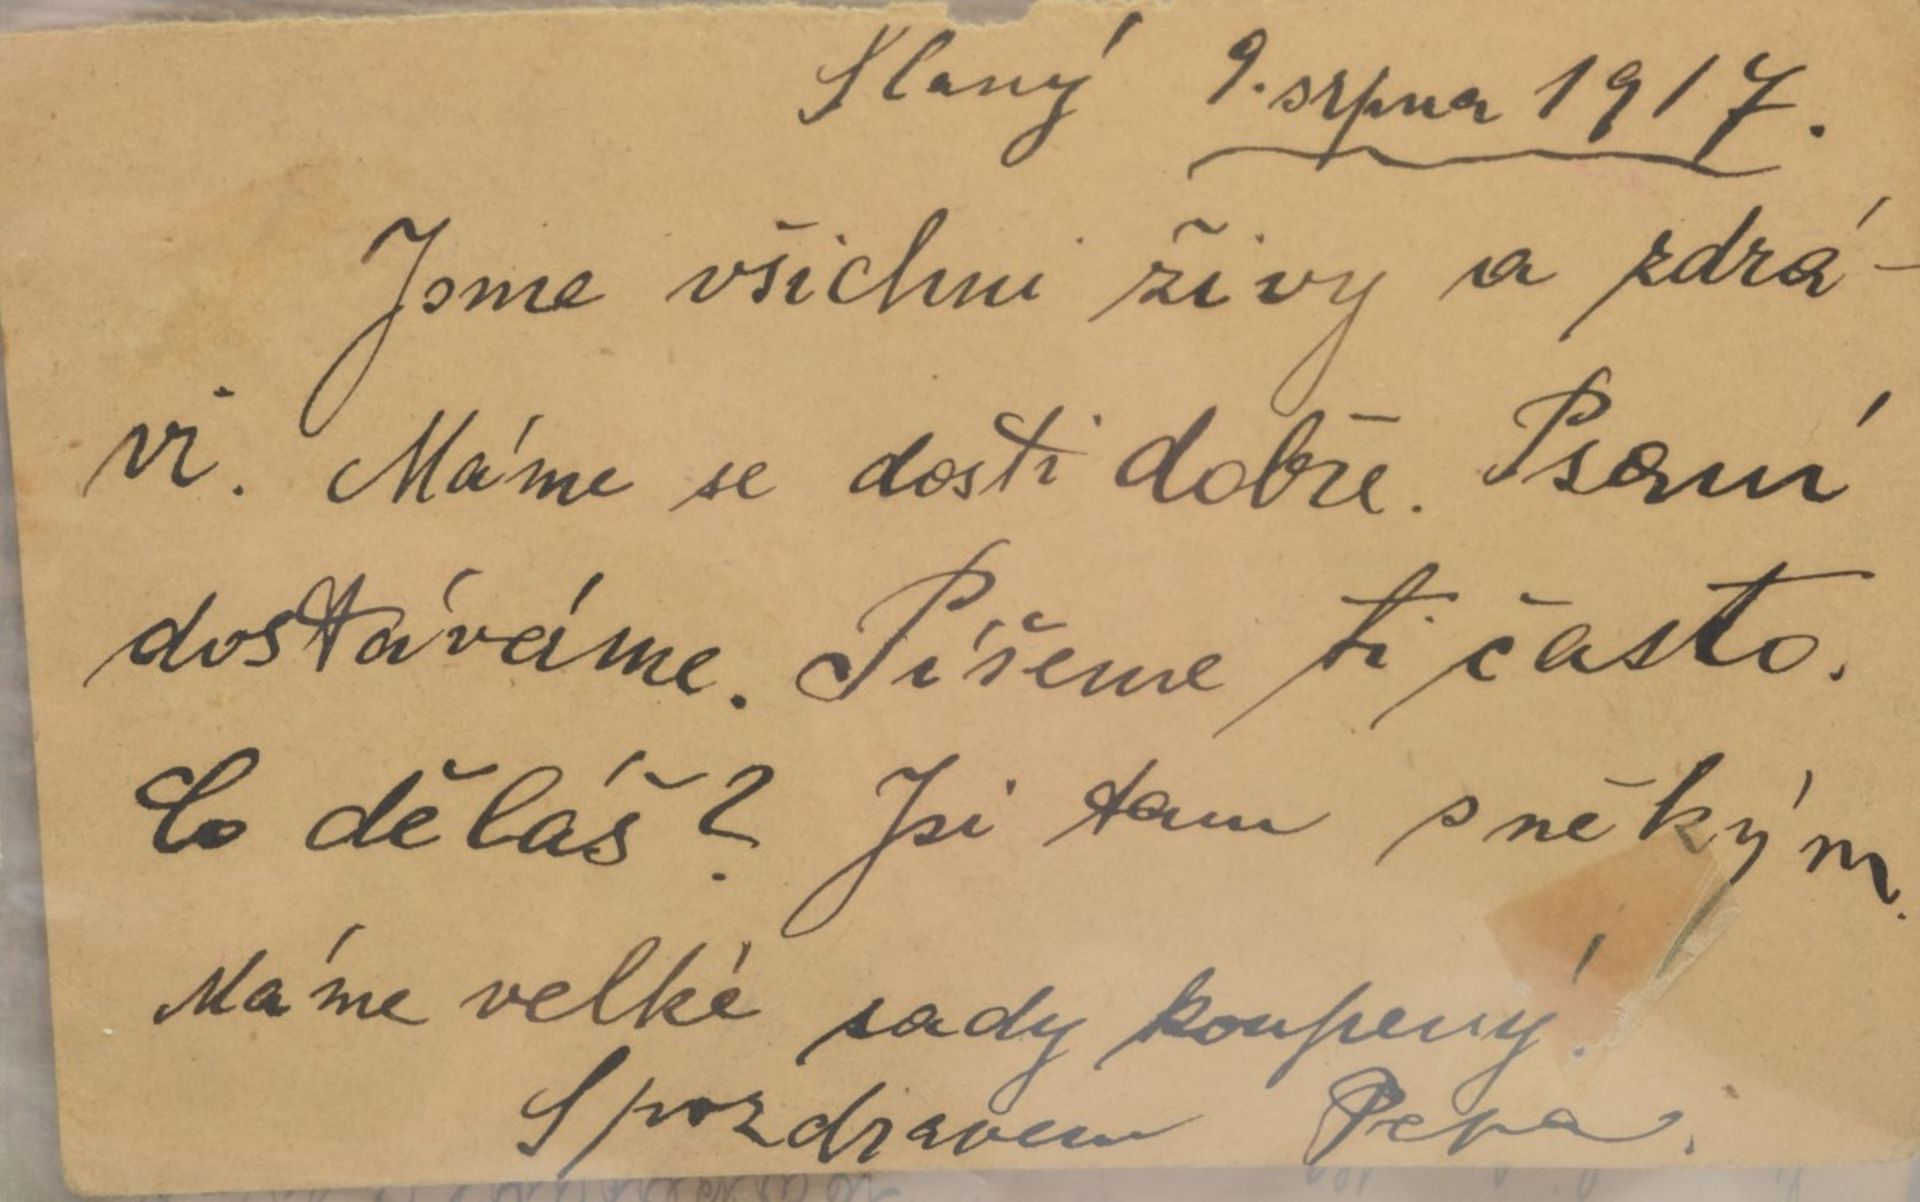 Slaný 9. srpna 1917.
Jsme všichni živy a zdrá-
vi. Máme se dosti dobře. Psaní
dostáváme. Píšeme ti často.
Co děláš? Jsi tam s někým.
Máme velké sady koupený.
S pozdravem Pepa.